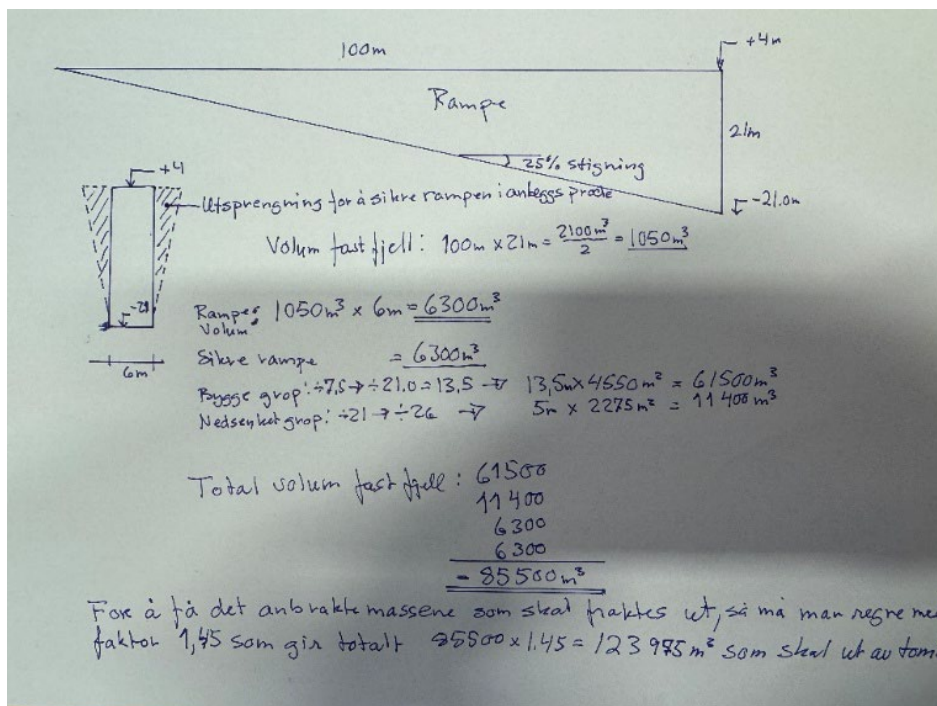 100m
+4m
Rampe
21m
25% stigning
-21.0m
+4
Utsprengning for å sikre rampen i anleggs
Volum fast fjell: 100m x 21m = 2100m³ / 2 = 1050m³
-21
6m
Rampe Volum: 1050m³ x 6m = 6300m³
Sikre rampe = 6300m³
Bygge grop: ÷7,5 → ÷21.0 = 13,5 → 13,5m x 4550m² = 61500m³
Nedsenket grop: ÷21 → ÷26 → 5m x 2275m² = 11400m³
Total volum fast fjell: 61500
11400
6300
6300
- 85500m³
For å få det anbrakte massene som skal fraktes ut, så må man regne me
faktor 1,45 som gir totalt 85500 x 1.45 = 123975m³ som skal ut av tom